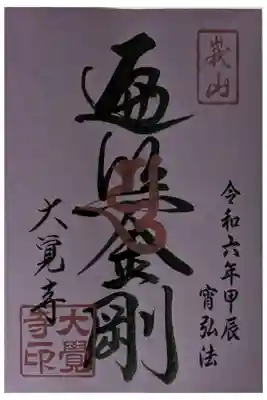 令和六年甲辰
宵弘法
遍照金剛
大覚寺
大覺
寺印